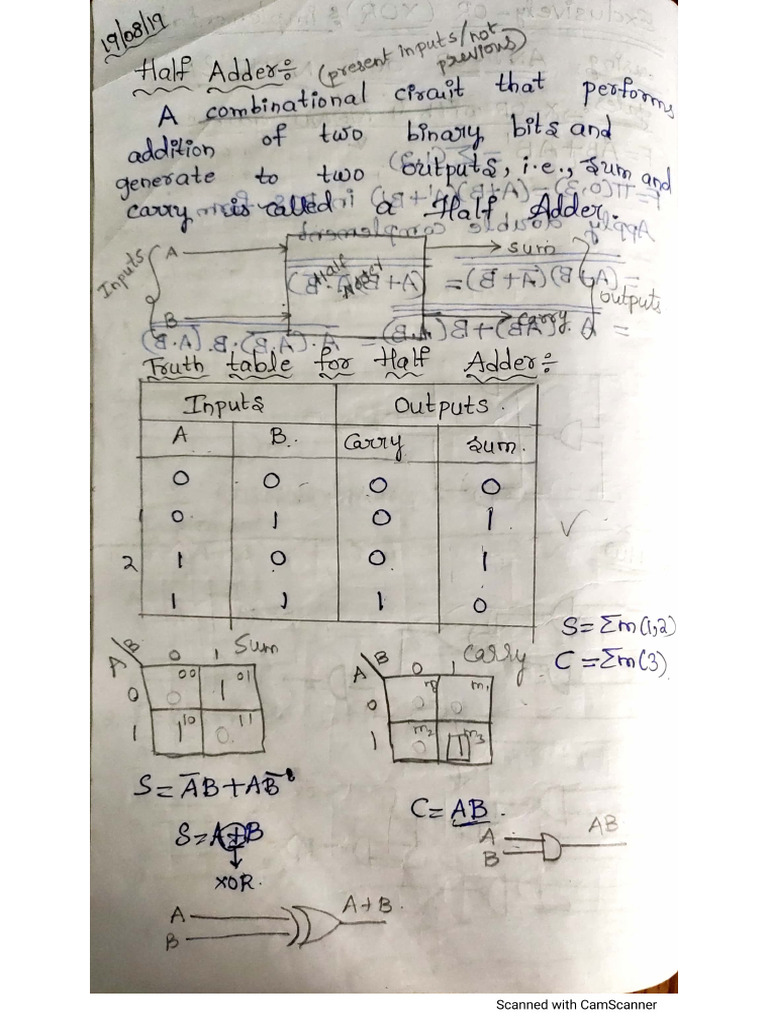 19/08/19
Half Adder:- (present inputs/not previous)
A combinational circuit that performs
addition of two binary bits and
generate to two outputs, i.e., sum and
carry is called a Half Adder.
Inputs A Half Adder sum outputs
B carry
Truth table for Half Adder:-
Inputs Outputs.
A B. Carry Sum.
0 0 0 0
0 1 0 1
2 1 0 0 1
1 1 1 0
S=Σm(1,2)
C=Σm(3)
Sum
A\B 0 1
0 0 00 1 01
1 1 10 0 11
Carry
A\B 0 1
0 m0 0 m1 0
1 m2 0 m3 1
S= A̅B+AB̅
C= AB.
S=A⊕B
XOR.
A AB
B
A A+B.
B
Scanned with CamScanner